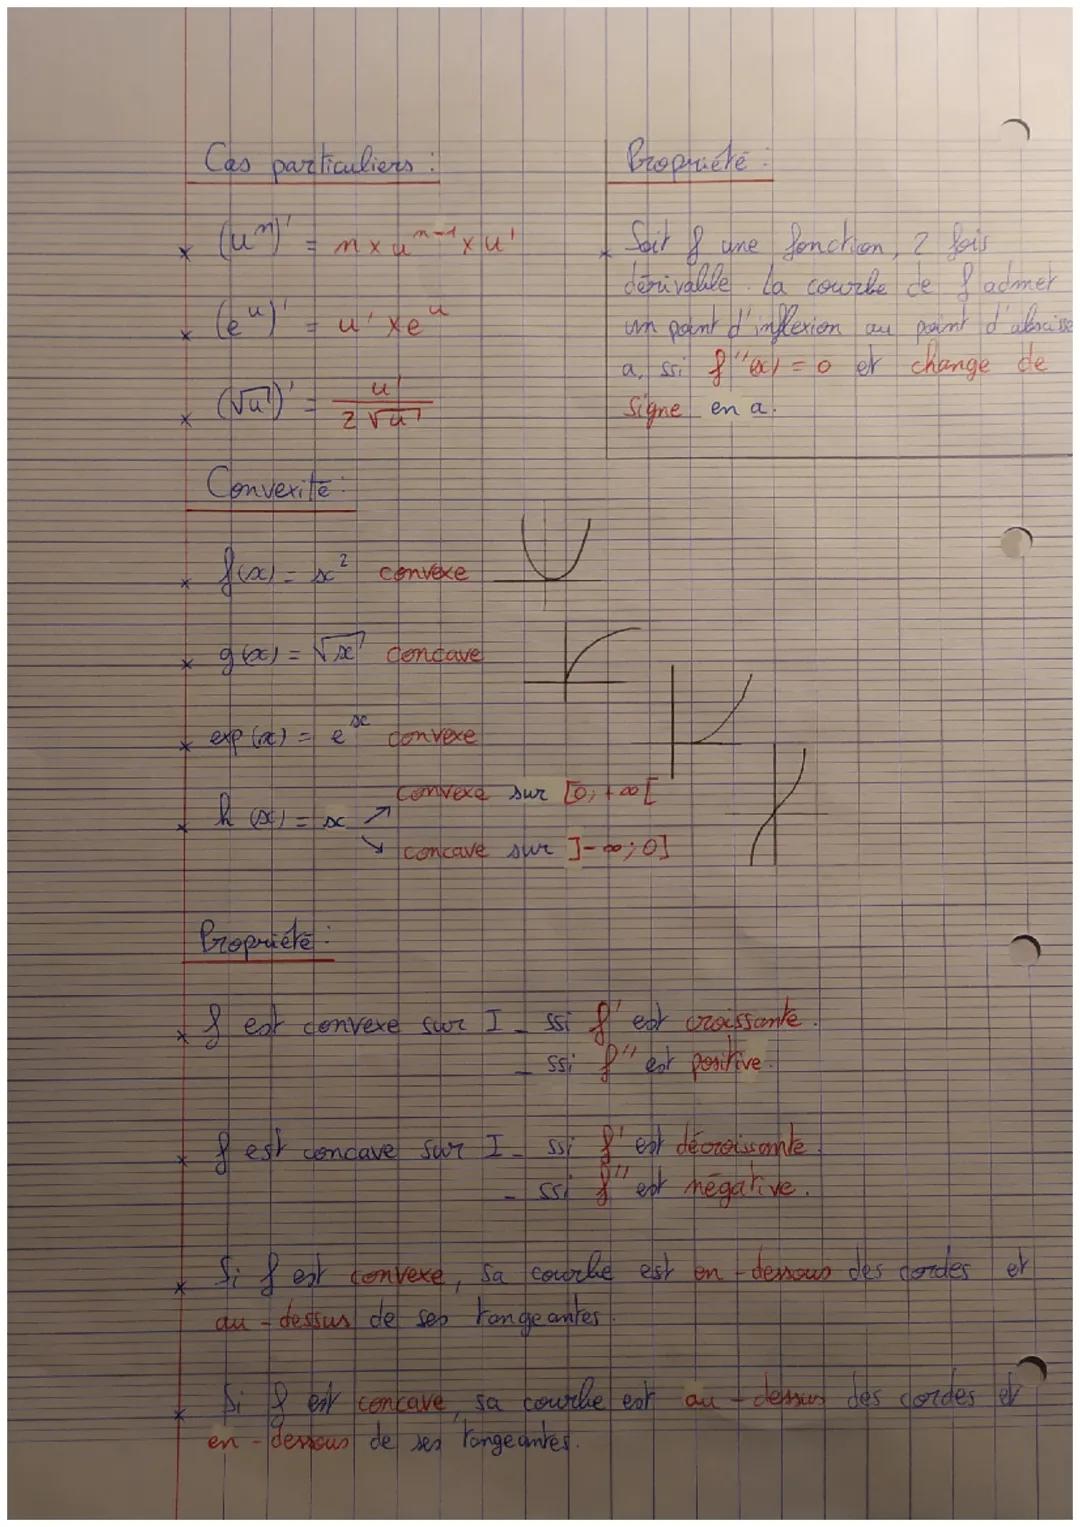 Cas particuliers :
× (uⁿ)' = n × uⁿ⁻¹ × u'
× (eᵘ)' = u' × eᵘ
× (√u)' = u' / 2√u
Propriété :
× Soit f une fonction, 2 fois
dérivable. La courbe de f admet
un point d'inflexion au point d'abscisse
a, ssi f''(x) = 0 et change de
signe en a.
Convexité :
× f(x) = x² convexe
× g(x) = √x concave
× exp(x) = eˣ convexe
× h(x) = x ↗ convexe sur [0; +∞[
↘ concave sur ]-∞; 0]
Propriété :
× f est convexe sur I - ssi f' est croissante.
- ssi f'' est positive.
× f est concave sur I - ssi f' est décroissante.
- ssi f'' est négative.
× Si f est convexe, sa courbe est en-dessous des cordes et
au-dessus de ses tangeantes.
× Si f est concave, sa courbe est au-dessus des cordes et
en-dessous de ses tangeantes.